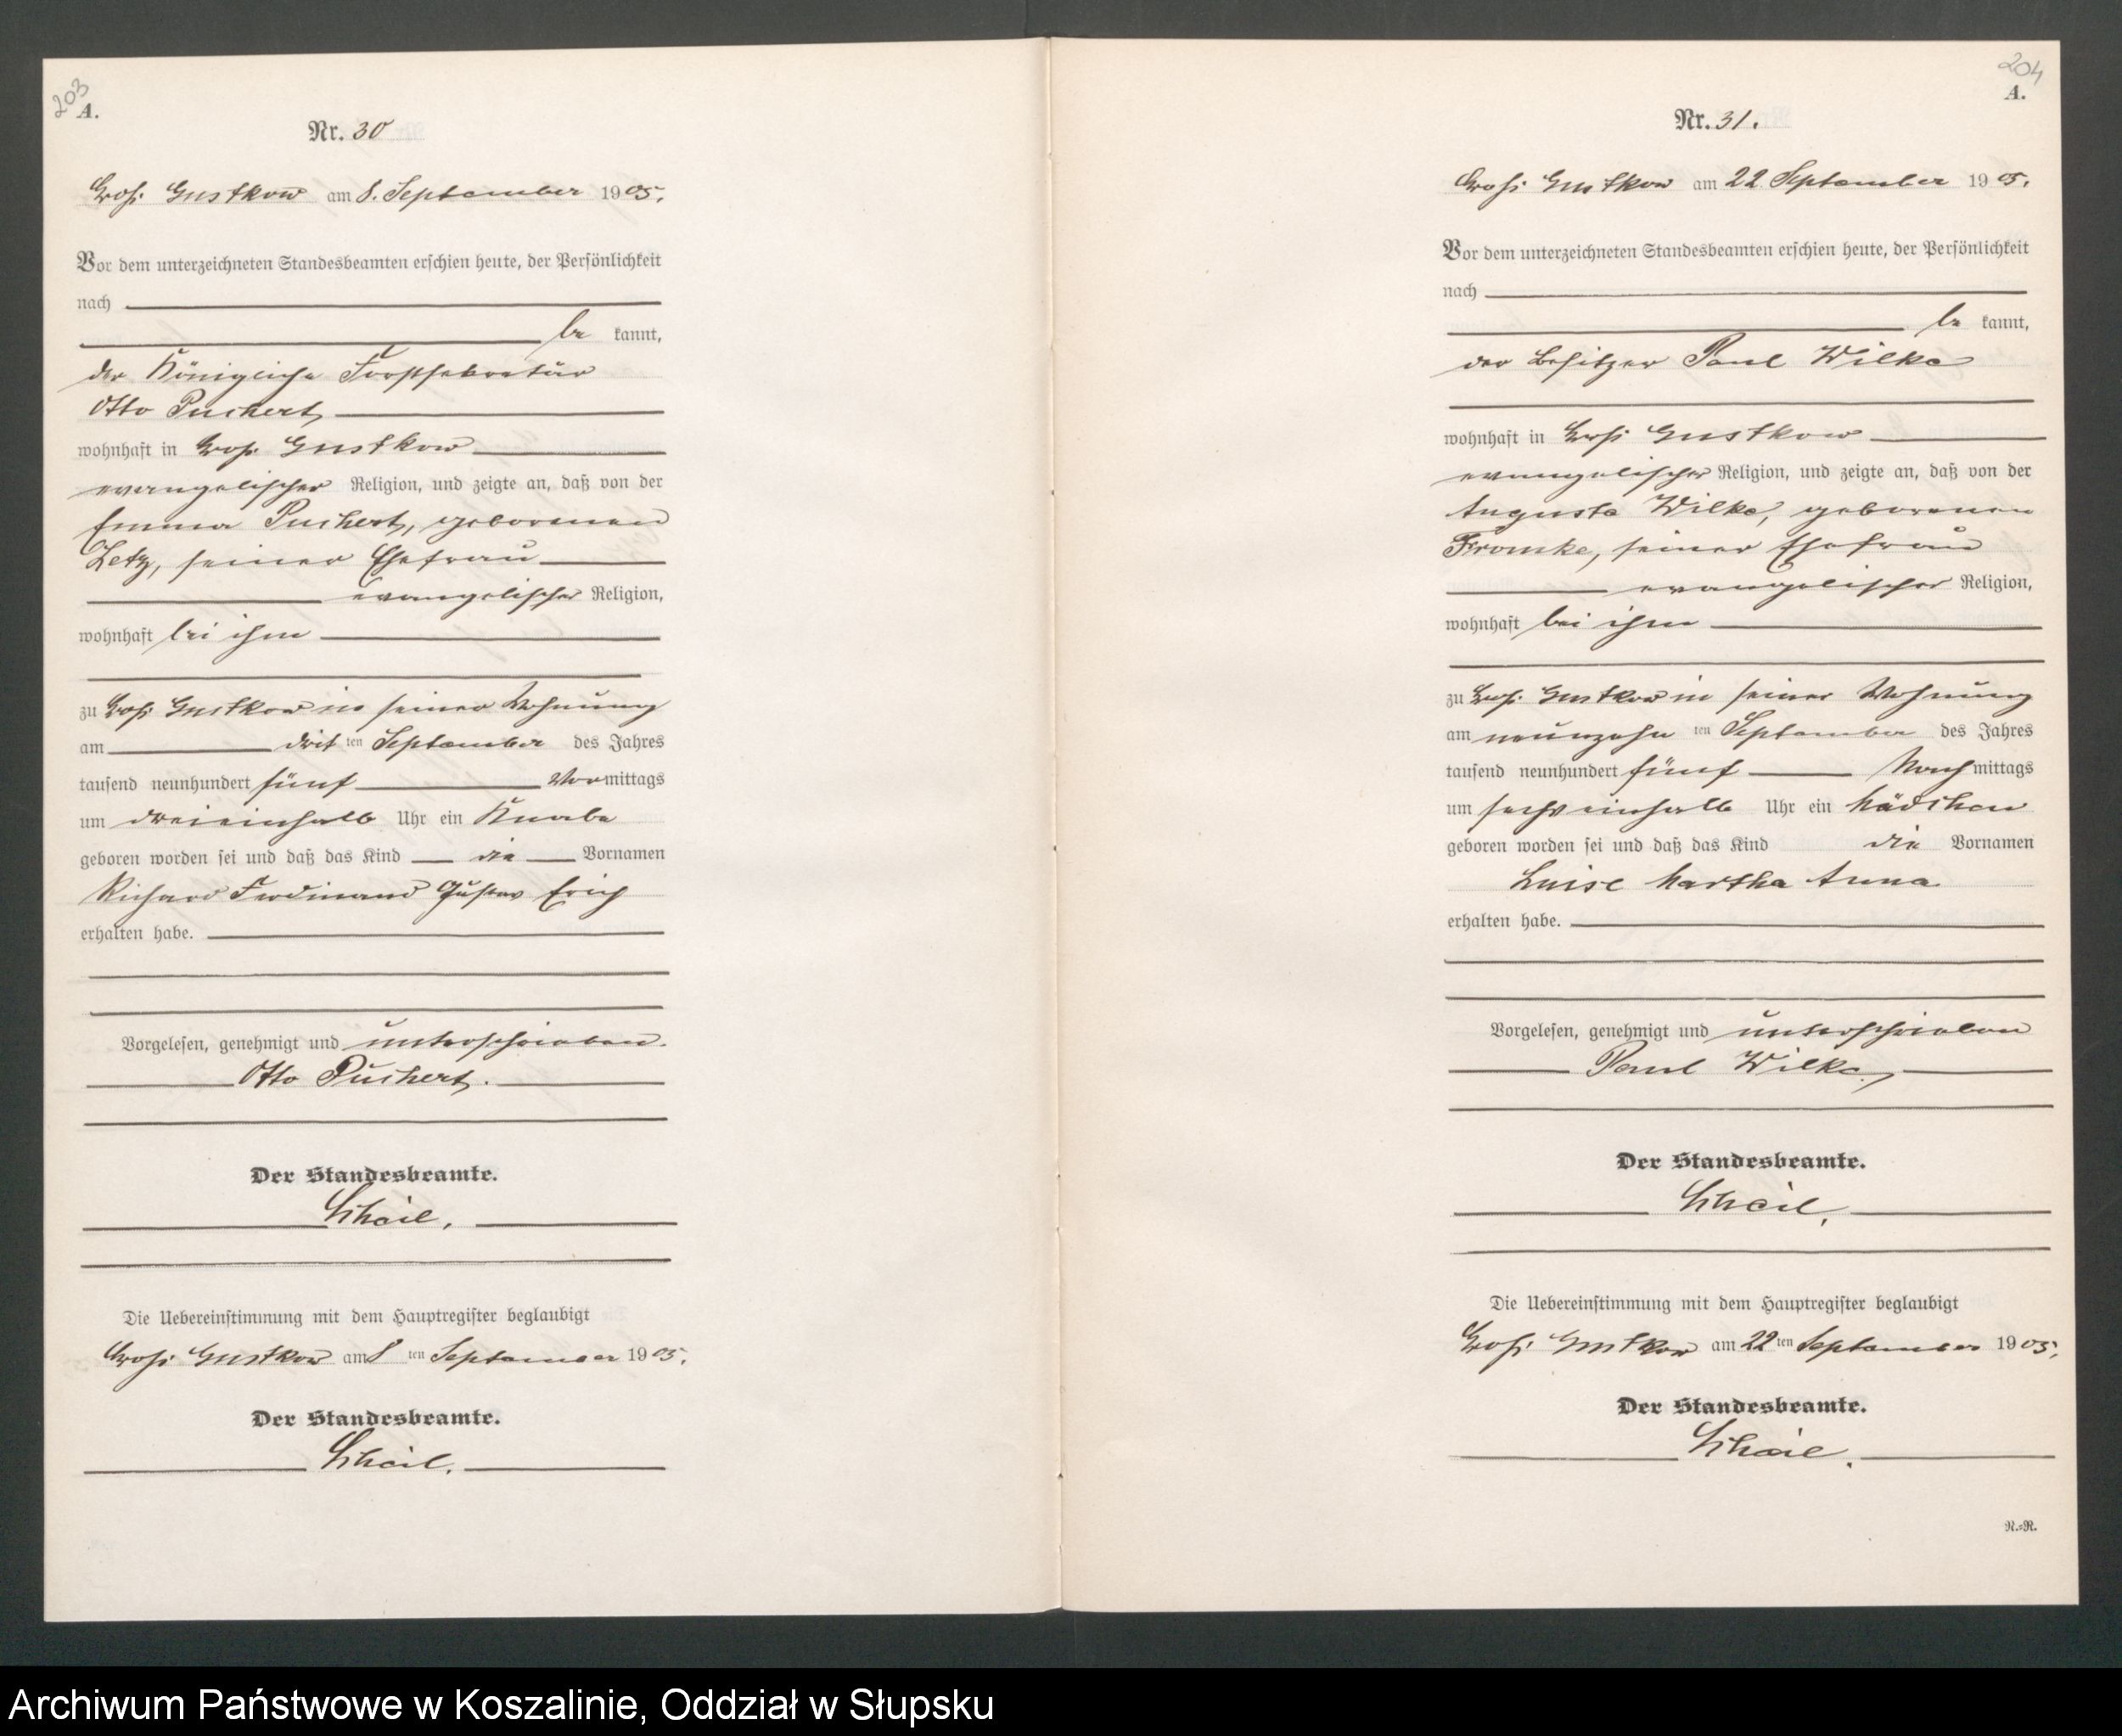 203
A.
Nr. 30
Groß Gustkow am 8. September 1905.
Vor dem unterzeichneten Standesbeamten erschien heute, der Persönlichkeit
nach
be kannt,
der Königliche Forstsekretär
Otto Puchert,
wohnhaft in Groß Gustkow
evangelischer Religion, und zeigte an, daß von der
Emma Puchert, geborenen
Letz, seiner Ehefrau
evangelischer Religion,
wohnhaft bei ihm
zu Groß Gustkow in seiner Wohnung
am drit ten September des Jahres
tausend neunhundert fünf Vormittags
um dreieinhalb Uhr ein Knabe
geboren worden sei und daß das Kind die Vornamen
Richard Ferdinand Gustav Erich
erhalten habe.
Vorgelesen, genehmigt und unterschrieben.
Otto Puchert.
Der Standesbeamte.
Scheil.
Die Uebereinstimmung mit dem Hauptregister beglaubigt
Groß Gustkow am 8 ten September 1905.
Der Standesbeamte.
Scheil.
204
A.
Nr. 31.
Groß Gustkow am 22 September 1905.
Vor dem unterzeichneten Standesbeamten erschien heute, der Persönlichkeit
nach
be kannt,
der Besitzer Paul Wilke
wohnhaft in Groß Gustkow
evangelischer Religion, und zeigte an, daß von der
Auguste Wilke, geborenen
Fromke, seiner Ehefrau
evangelischer Religion,
wohnhaft bei ihm
zu Groß Gustkow in seiner Wohnung
am neunzehn ten September des Jahres
tausend neunhundert fünf Nachmittags
um sechseinhalb Uhr ein Mädchen
geboren worden sei und daß das Kind die Vornamen
Luise Martha Anna
erhalten habe.
Vorgelesen, genehmigt und unterschrieben
Paul Wilke,
Der Standesbeamte.
Scheil.
Die Uebereinstimmung mit dem Hauptregister beglaubigt
Groß Gustkow am 22 ten September 1905.
Der Standesbeamte.
Scheil.
N.=R.
Archiwum Państwowe w Koszalinie, Oddział w Słupsku